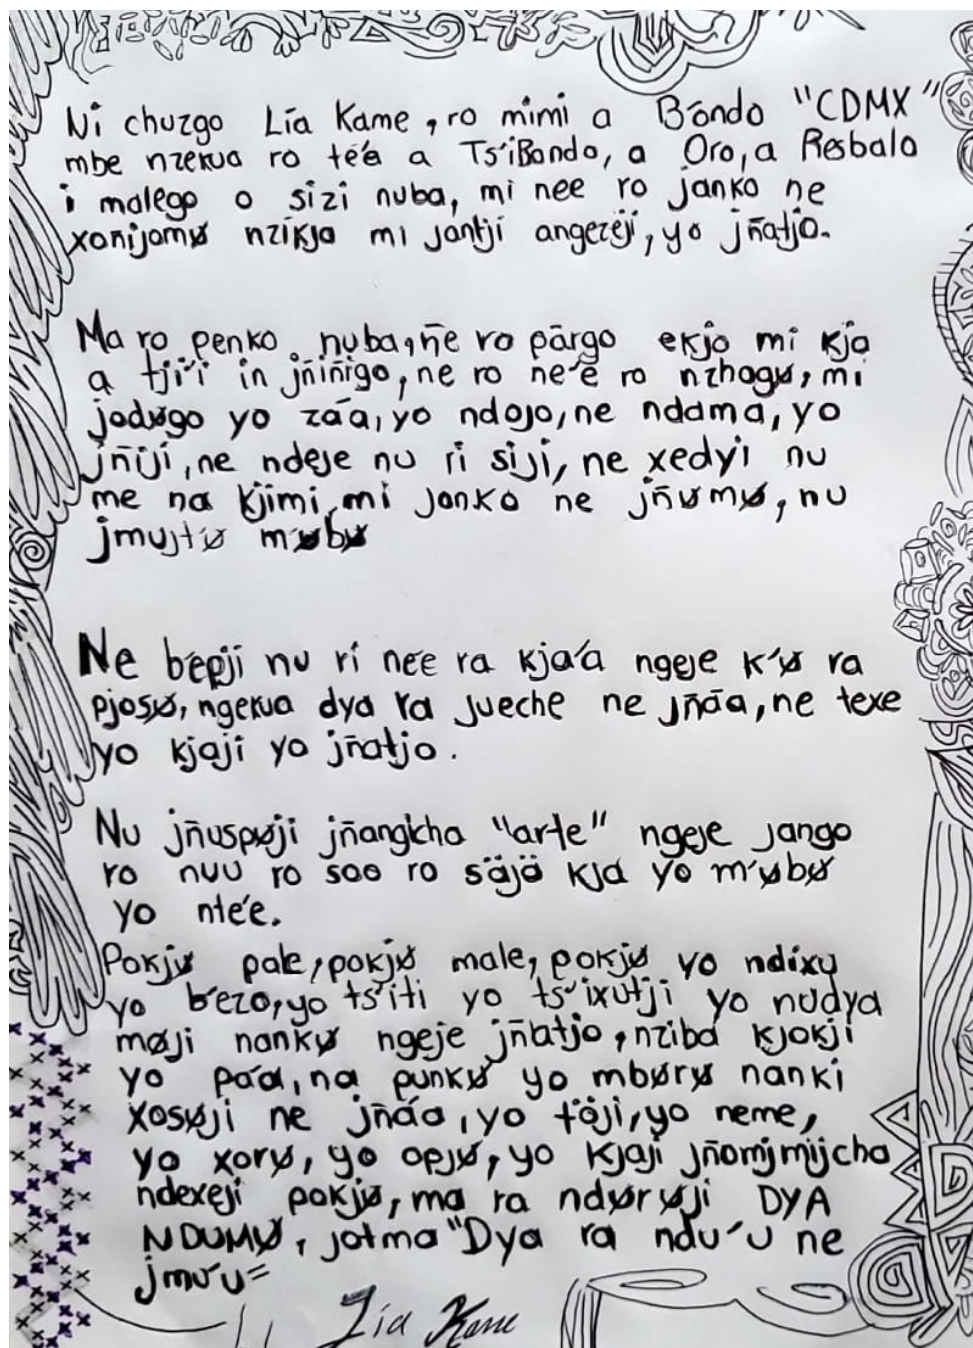 Ni chuzgo Lía Kame, ro mimi a Bóndo "CDMX"
mbe nzekua ro té'e a Ts'iBondo, a Oro, a Resbalo
i malego o sizi nuba, mi nee ro janko ne
xoñijomø nzikjo mi jantji angezeji, yo jñatjo.
Ma ro penko nuba, ñe ro pārgo ekjo mi kja
a tji'i in jñiñigo, ne ro ne'e ro nzhogø, mi
jodøgo yo záa, yo ndojo, ne ndama, yo
jñiji, ne ndeje nu ri siji, ne xedyi nu
me na kjimi, mi janko ne jñømø, nu
jmujtø møbø
Ne b'epji nu rí nee ra kja'a ngeje k'ø ra
pjosø, ngekua dya ra jueche ne jñāa, ne texe
yo kjaji yo jñatjo.
Nu jñuspøji jñangicha "arte" ngeje jango
ro nuu ro soo ro säjä kja yo m'øbø
yo nte'e.
Pokjø pale, pokjø male, pokjø yo ndixu
yo b'ezo, yo ts'iti yo ts'ixutji yo nudya
møji nankø ngeje jñatjo, nziba kjokji
yo pa'a, na punkø yo mbørø nanki
xosøji ne jñáa, yo tōji, yo neme,
yo xorø, yo opjø, yo kjaji jñomjmijcha
ndexeji pokjø, ma ra ndørøji DYA
NDUMØ, jotma "Dya ra ndu'u ne
jmu'u=
Lía Kame